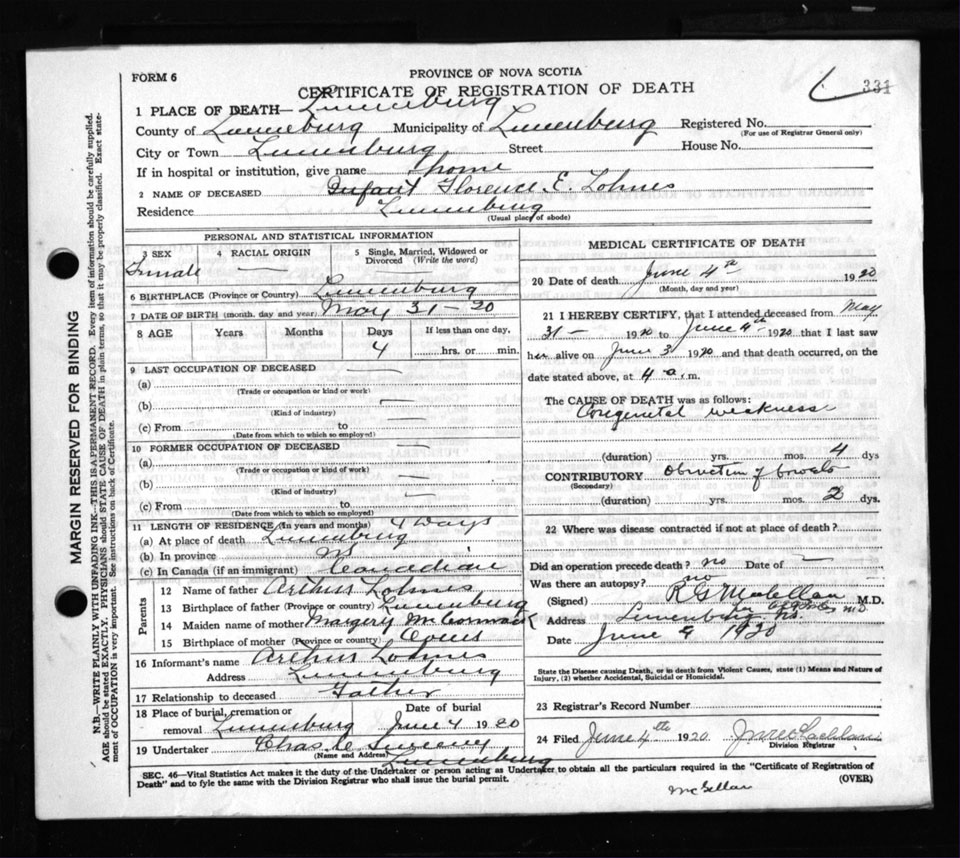 PROVINCE OF NOVA SCOTIA
FORM 6
CERTIFICATE OF REGISTRATION OF DEATH
331
1 PLACE OF DEATH— Lunenburg
County of Lunenburg Municipality of Lunenburg Registered No.
(For use of Registrar General only)
City or Town Lunenburg Street House No.
If in hospital or institution, give name home
2 NAME OF DECEASED Infant Florence E. Lohnes
Residence Lunenburg
(Usual place of abode)
PERSONAL AND STATISTICAL INFORMATION
3 SEX 4 RACIAL ORIGIN 5 Single, Married, Widowed or Divorced (Write the word)
Female — —
6 BIRTHPLACE (Province or Country) Lunenburg
7 DATE OF BIRTH (month, day and year) May 31–20
8 AGE Years Months Days If less than one day,
4 hrs. or min.
9 LAST OCCUPATION OF DECEASED —
(a)
(Trade or occupation or kind or work)
(b) —
(Kind of industry)
(c) From to —
(Date from which to which so employed)
10 FORMER OCCUPATION OF DECEASED —
(a)
(Trade or occupation or kind of work)
(b) —
(Kind of industry)
(c) From to —
(Date from which to which so employed)
11 LENGTH OF RESIDENCE (In years and months) 4 Days
(a) At place of death Lunenburg
(b) In province NS
(c) In Canada (if an immigrant) Canadian
Parents
12 Name of father Arthur Lohnes
13 Birthplace of father (Province or country) Lunenburg
14 Maiden name of mother Margery McCormack
15 Birthplace of mother (Province or country)
16 Informant's name Arthur Lohnes
Address Lunenburg
17 Relationship to deceased Father
18 Place of burial, cremation or removal Lunenburg Date of burial June 4 1920
19 Undertaker Chas
(Name and Address) Lunenburg
MEDICAL CERTIFICATE OF DEATH
20 Date of death June 4th 1920
(Month, day and year)
21 I HEREBY CERTIFY, that I attended deceased from May
31 — 1920 to June 4th 1920 that I last saw
her alive on June 3 1920 and that death occurred, on the
date stated above, at 4 a. m.
The CAUSE OF DEATH was as follows:
Congenital weakness
(duration) yrs. mos. 4 dys
CONTRIBUTORY Obstruction of bowels
(Secondary)
(duration) yrs. mos. 2 dys.
22 Where was disease contracted if not at place of death?
Did an operation precede death? no Date of —
Was there an autopsy? no
(Signed) R G McLellan M.D.
Address Lunenburg NS.
Date June 9 1920
State the Disease causing Death, or in death from Violent Causes, state (1) Means and Nature of
Injury, (2) whether Accidental, Suicidal or Homicidal.
23 Registrar's Record Number
24 Filed June 4th 1920
Division Registrar
SEC. 46—Vital Statistics Act makes it the duty of the Undertaker or person acting as Undertaker to obtain all the particulars required in the "Certificate of Registration of
Death" and to fyle the same with the Division Registrar who shall issue the burial permit. (OVER)
McLellan
MARGIN RESERVED FOR BINDING
N.B.—WRITE PLAINLY WITH UNFADING INK—THIS IS A PERMANENT RECORD. Every item of information should be carefully supplied.
AGE should be stated EXACTLY. PHYSICIANS should STATE CAUSE OF DEATH in plain terms, so that it may be properly classified. Exact state-
ment of OCCUPATION is very important. See instructions on back of Certificate.